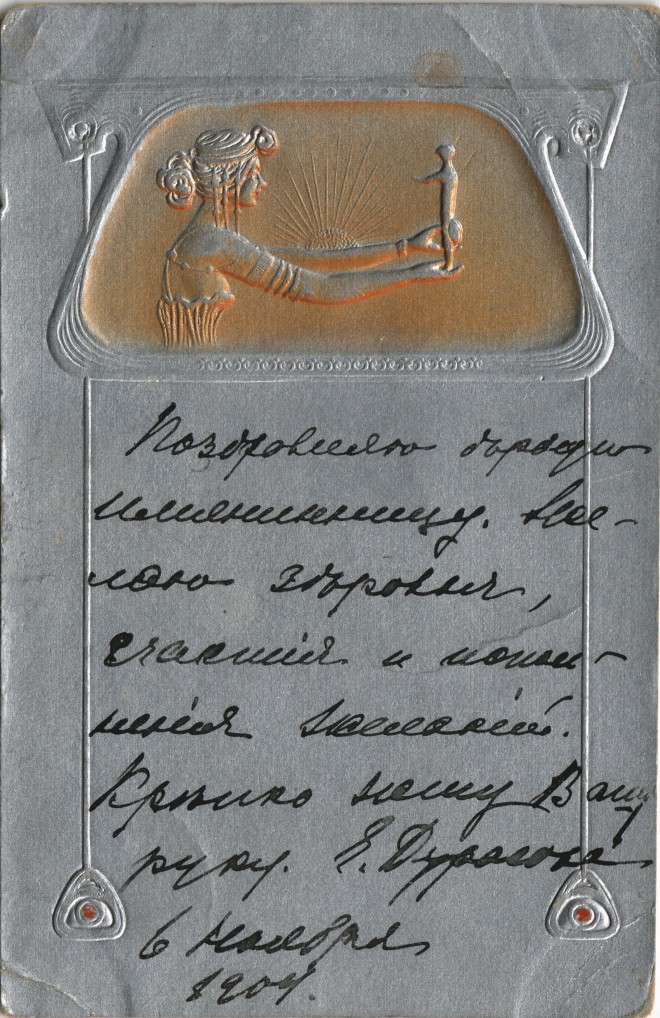 Поздровляю дорогую
имянинницу. Же-
лаю здоровья,
счастія и испол-
ненія желаній.
Крѣпко жму Вашу
руку. Е. Дурасова
6 ноября
1904.